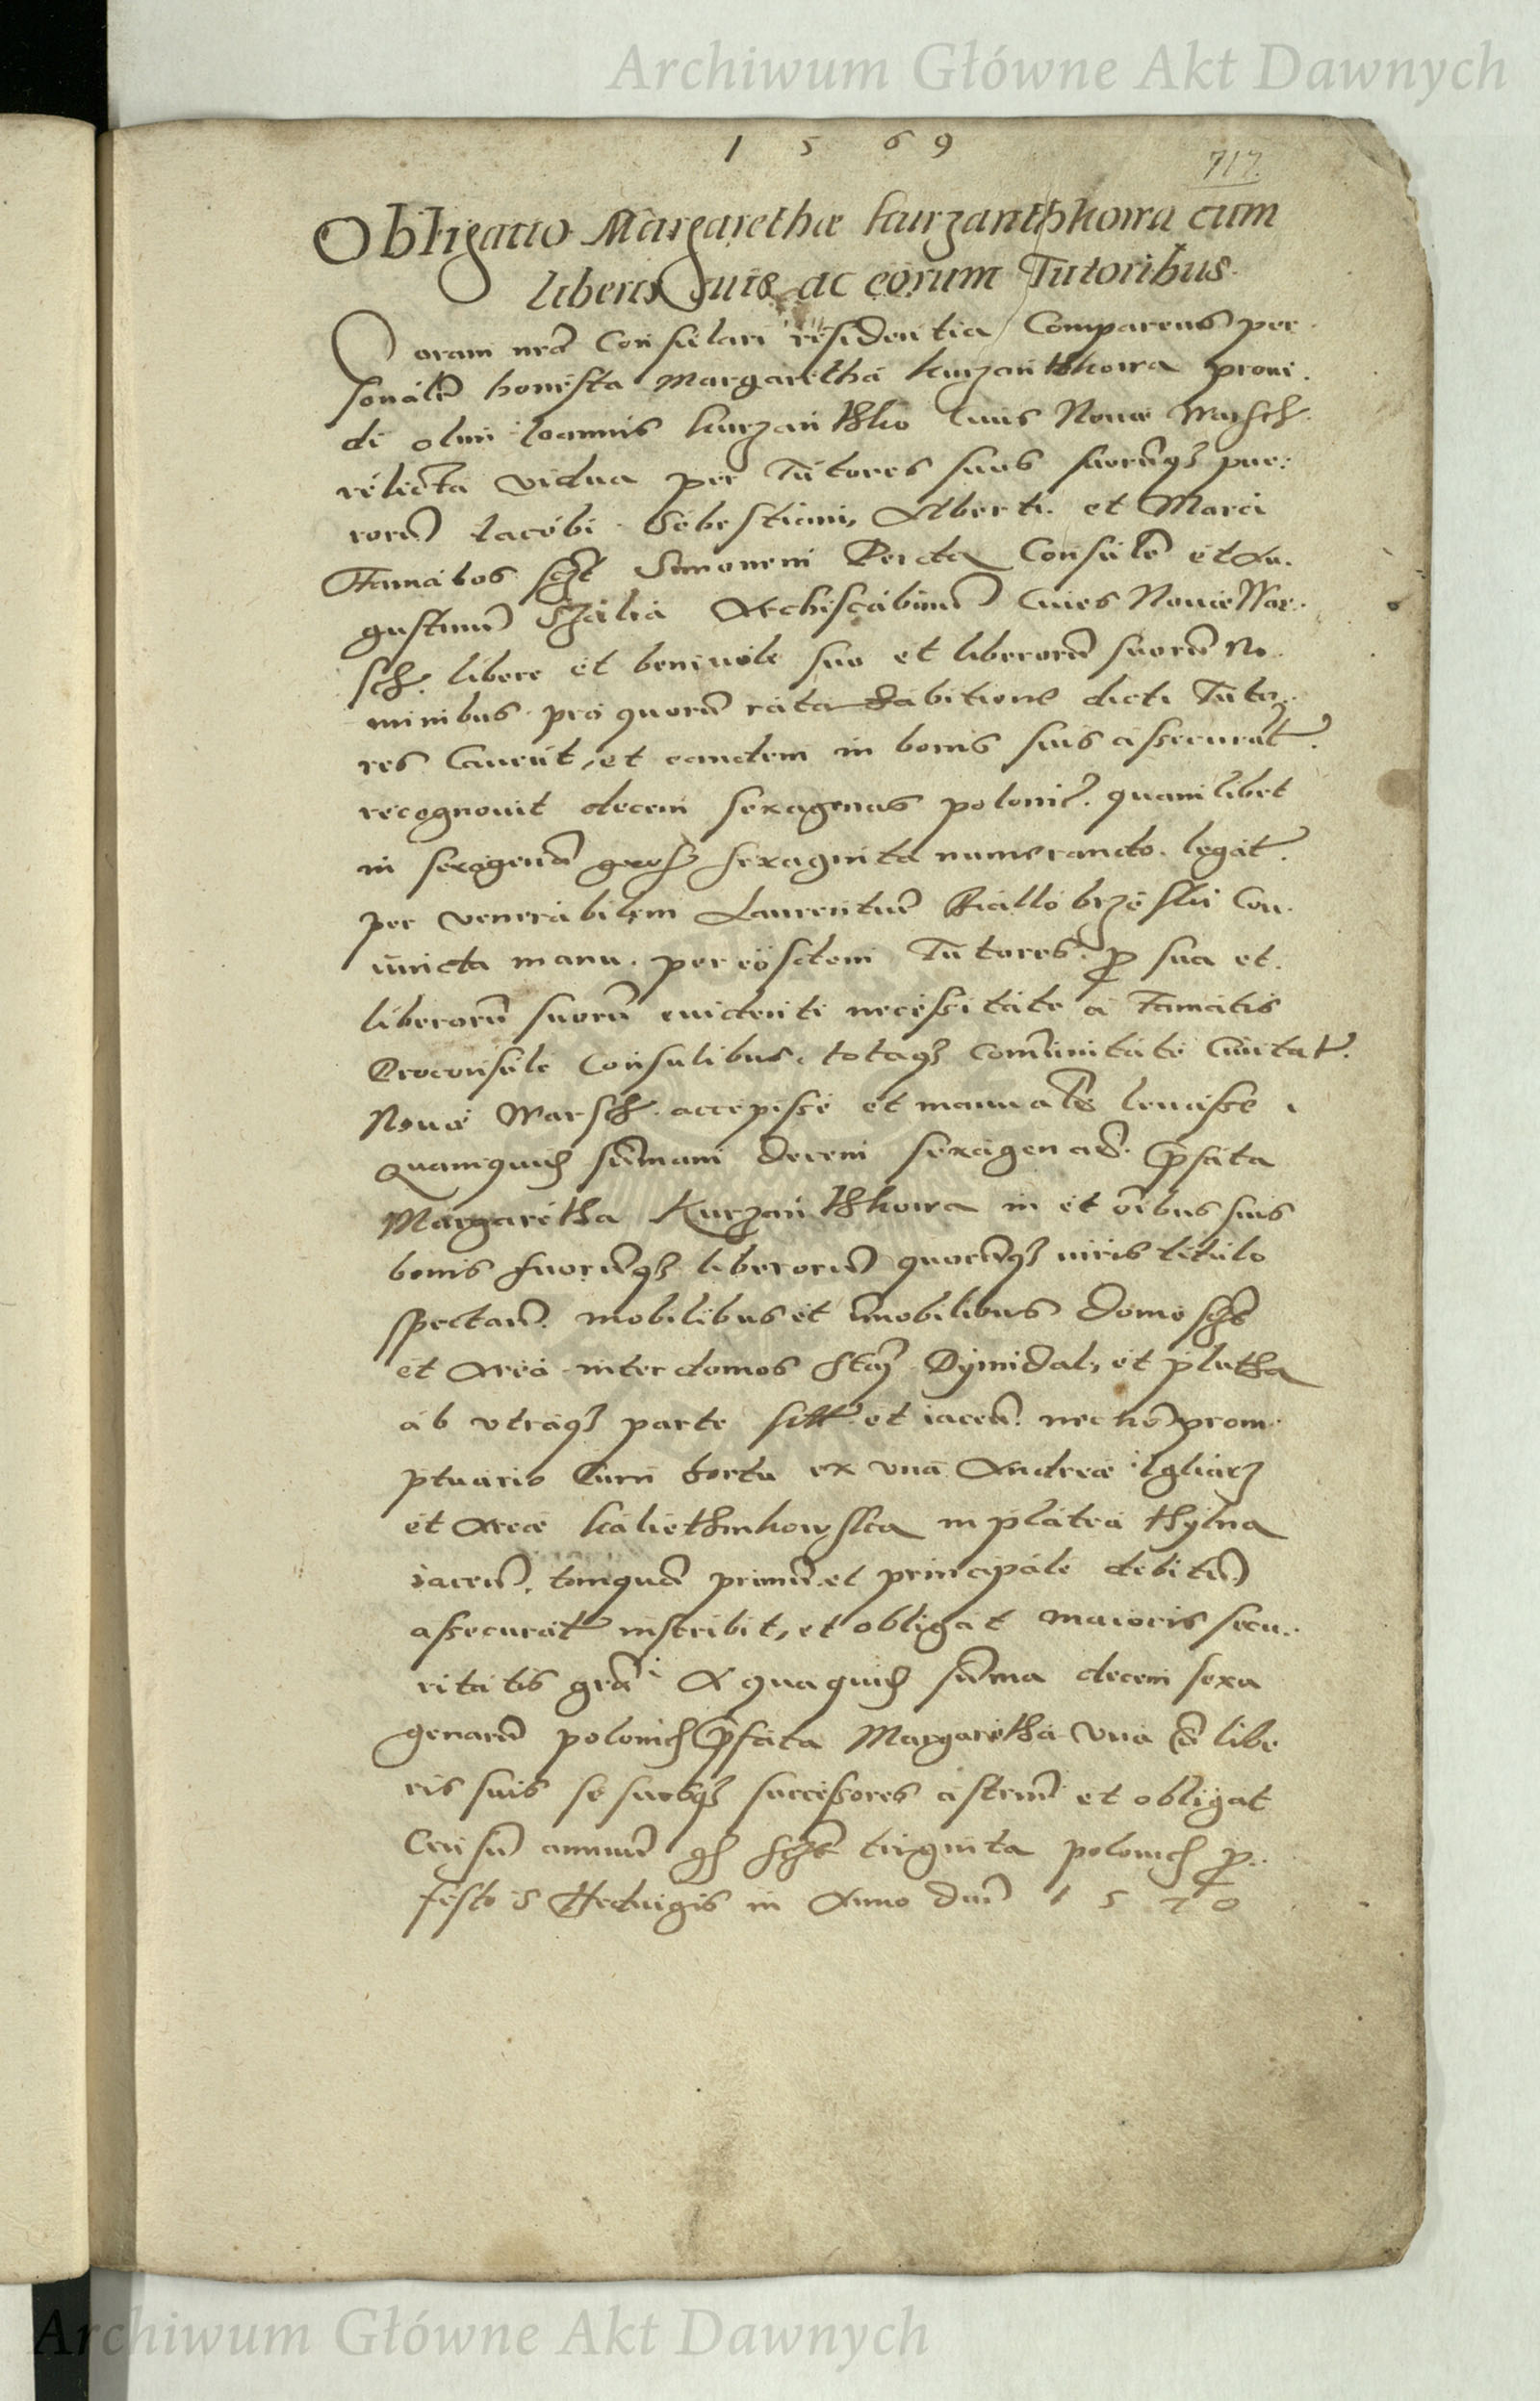 Archiwum Główne Akt Dawnych
1 5 6 9
717.
Obligatio Margarethæ kurzanthkowa cum
liberis suis ac eorum Tutoribus
Coram nrā Consulari residentia Comparens per
sonalr honesta Margaretha kurzanthkowa proui.
di olim Ioannis kurzanthko Ciuis Nouæ Warsch.
relicta vidua per Tutores suos suorūq3 pue:
rorū Iacobi Sebestiani, Alberti et Marci
Famatos Simonem Consulē et Au.
gustinū Archiscabinū Ciues Nouæ War:
sch. libere et beniuole suo et liberorū suorū No
minibus pro quorū ratahabitione dicti Tuto:
res Cauent, et eandem in bonis suis assecurāt
recognouit decem sexagenas polonic. quamlibet
in sexagenā gross sexaginta numerando. legat.
per venerabilem Laurentiū Biallobrzeski Con.
iuncta manu. per eosdem Tutores. p sua et
liberorū suorū euidenti necessitate a Famatis
Proconsule Consulibus, totaq3 Comūnitate Ciuitat.
Nouæ Warsch. accepisse et manualr leuasse
quamquid sūmam decem sexagenas. pfata
Margaretha Kurzanthkowa in et oībus suis
bonis suorūq3 liberorū quorūq3 iuris titulo
spectan. mobilibus et īmobilibus domo
et Area inter domos Dÿmidal, et plutha
ab vtraq3 parte sitt et iacen. necnō prom
ptuario Cum horto ex vna Andreæ Igliarz
et Areæ in platea
iacen. tamquā primū et principale debitū
assecurat inscribit, et obligat maioris secu:
ritatis grā A qua quid sūma decem sexa
genarū polonich pfata Margaretha vna cū libe
ris suis se suosq3 successores astrin et obligat
Censū annuū triginta polonich p
festo S Heduigis in Anno dnī 1 5 7 0
Archiwum Główne Akt Dawnych